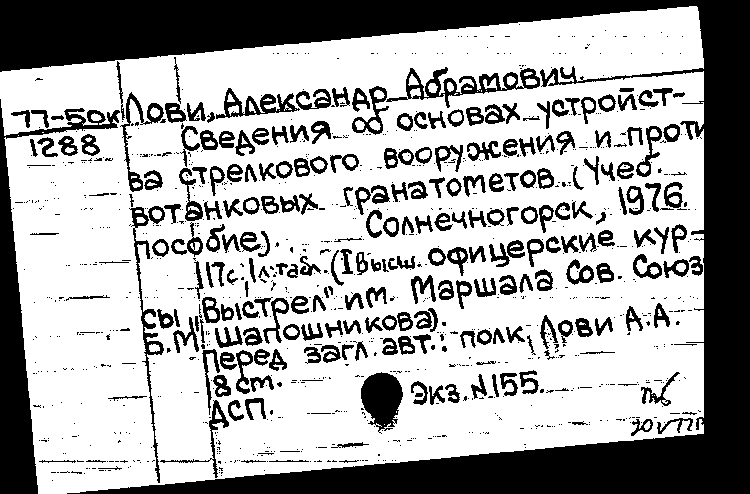 77-50к Лови, Александр Абрамович.
1288 Сведения об основах устройст-
ва стрелкового вооружения и проти
вотанковых гранатометов. (Учеб.
пособие). Солнечногорск, 1976.
117с; 1 л. табл. (I Высш. офицерские кур-
сы "Выстрел" им. Маршала Сов. Союз
Б.М. Шапошникова).
Перед загл. авт.: полк. Лови А.А.
18 см.
ДСП. Экз. №155.
20 V 77